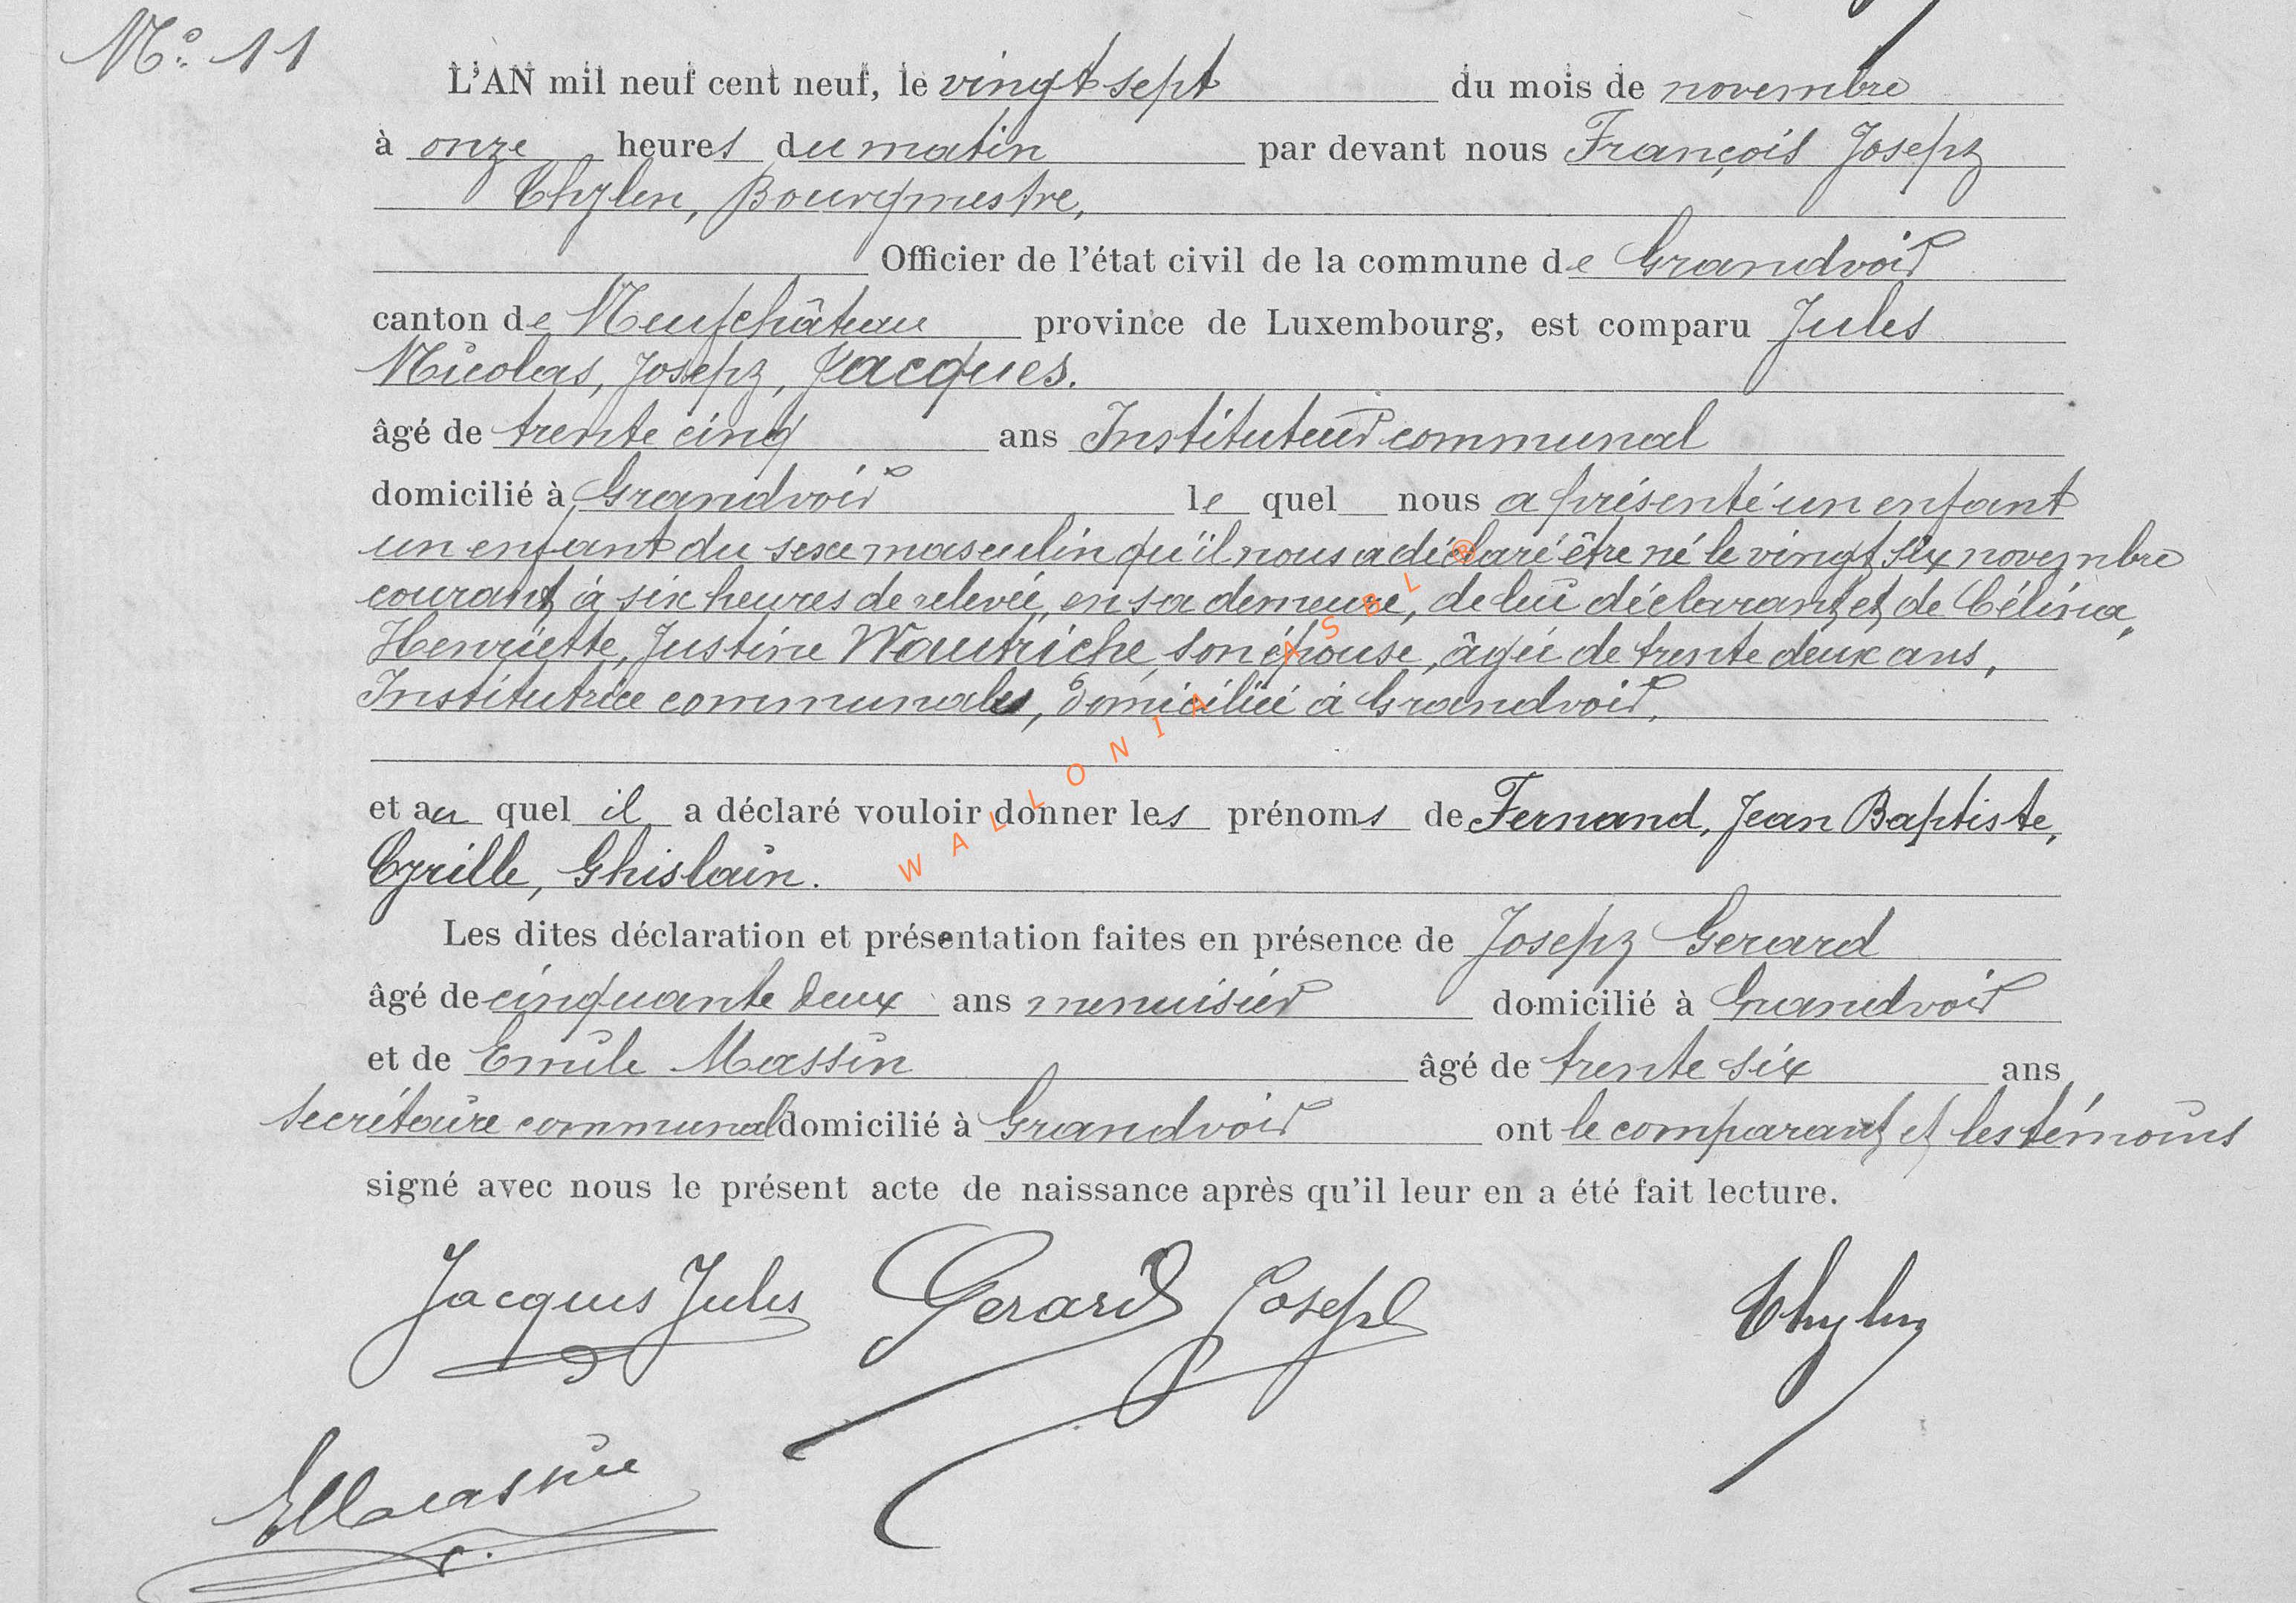 N° 11
L'AN mil neuf cent neuf, le vingt sept du mois de novembre
à onze heures du matin par devant nous François Joseph
Thylen, Bourgmestre,
Officier de l'état civil de la commune de Grandvoir
canton de Neufchâteau province de Luxembourg, est comparu Jules
Nicolas, Joseph, Jacques.
âgé de trente cinq ans Instituteur communal
domicilié à Grandvoir le quel nous a présenté un enfant
un enfant du sexe masculin qu'il nous a déclaré être né le vingt six novembre
courant, à six heures de relevée, en sa demeure, de lui déclarant et de Célina,
Henriette, Justine Wautriche, son épouse, âgée de trente deux ans,
Institutrice communale, domiciliée à Grandvoir.
et au quel il a déclaré vouloir donner les prénoms de Fernand, Jean Baptiste,
Cyrille, Ghislain.
Les dites déclaration et présentation faites en présence de Joseph Gerard
âgé de cinquante deux ans menuisier domicilié à Grandvoir
et de Emile Massin âgé de trente six ans
secrétaire communal domicilié à Grandvoir ont le comparant et les témoins
signé avec nous le présent acte de naissance après qu'il leur en a été fait lecture.
Jacques Jules Gerard Joseph Thylen
E Massin
WALLONIA ASBL ®